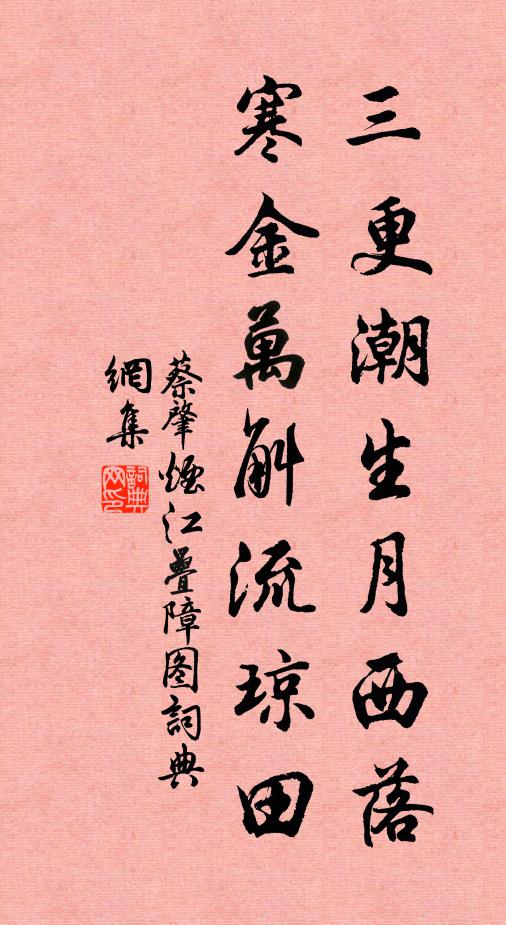 三更潮生月西落
寒金萬斛流琼田
蔡肇煙江疊障图詞典
網集
詞典
网印